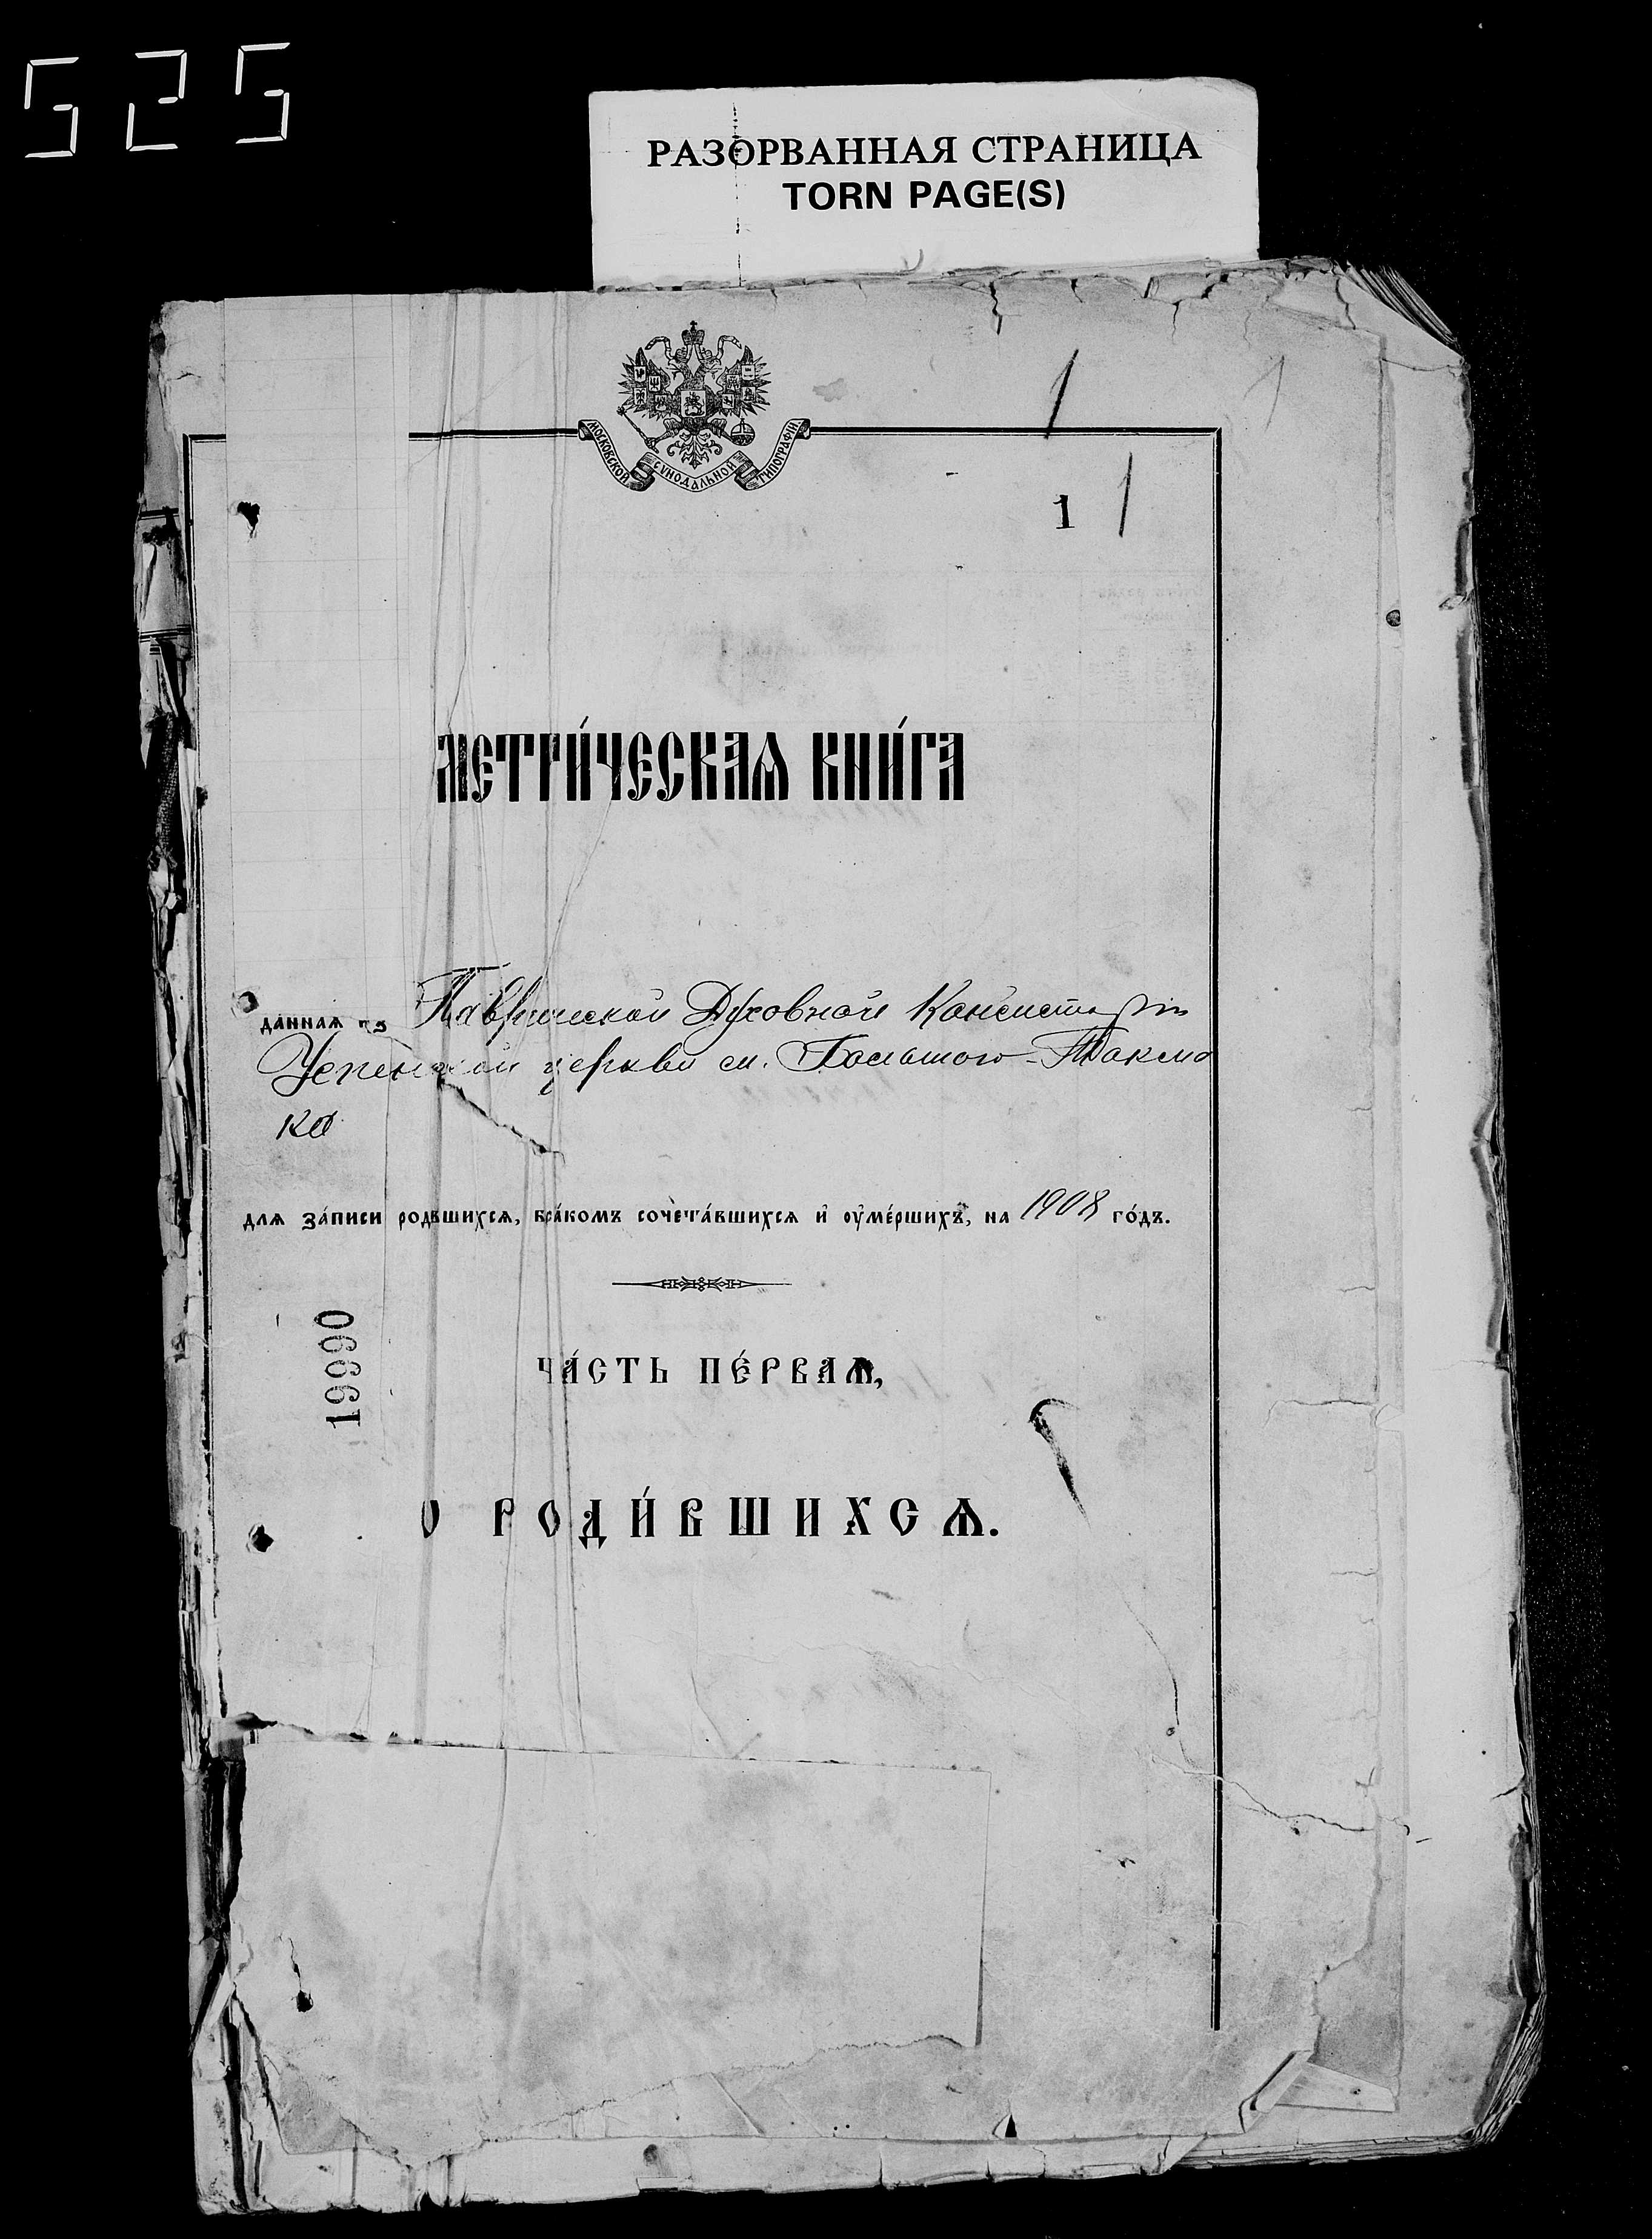 525
РАЗОРВАННАЯ СТРАНИЦА
TORN PAGE(S)
1
1
МОСКОВСКОЙ СѴНОДАЛЬНОЙ ТИПОГРАФІИ
1 1
МЕТРИ́ЧЕСКАѦ КНИ́ГА
да́ннаѧ изъ Таврической Духовной Консисторіи
Успенской церкви с. Большого-Токма
ка
длѧ за́писи роди́вшихсѧ, бра́комъ сочета́вшихсѧ и҆ ᲂу҆ме́ршихъ, на 1908 го́дъ.
19990
ЧА́СТЬ ПЕ́РВАѦ,
О РОДИ́ВШИХСѦ.